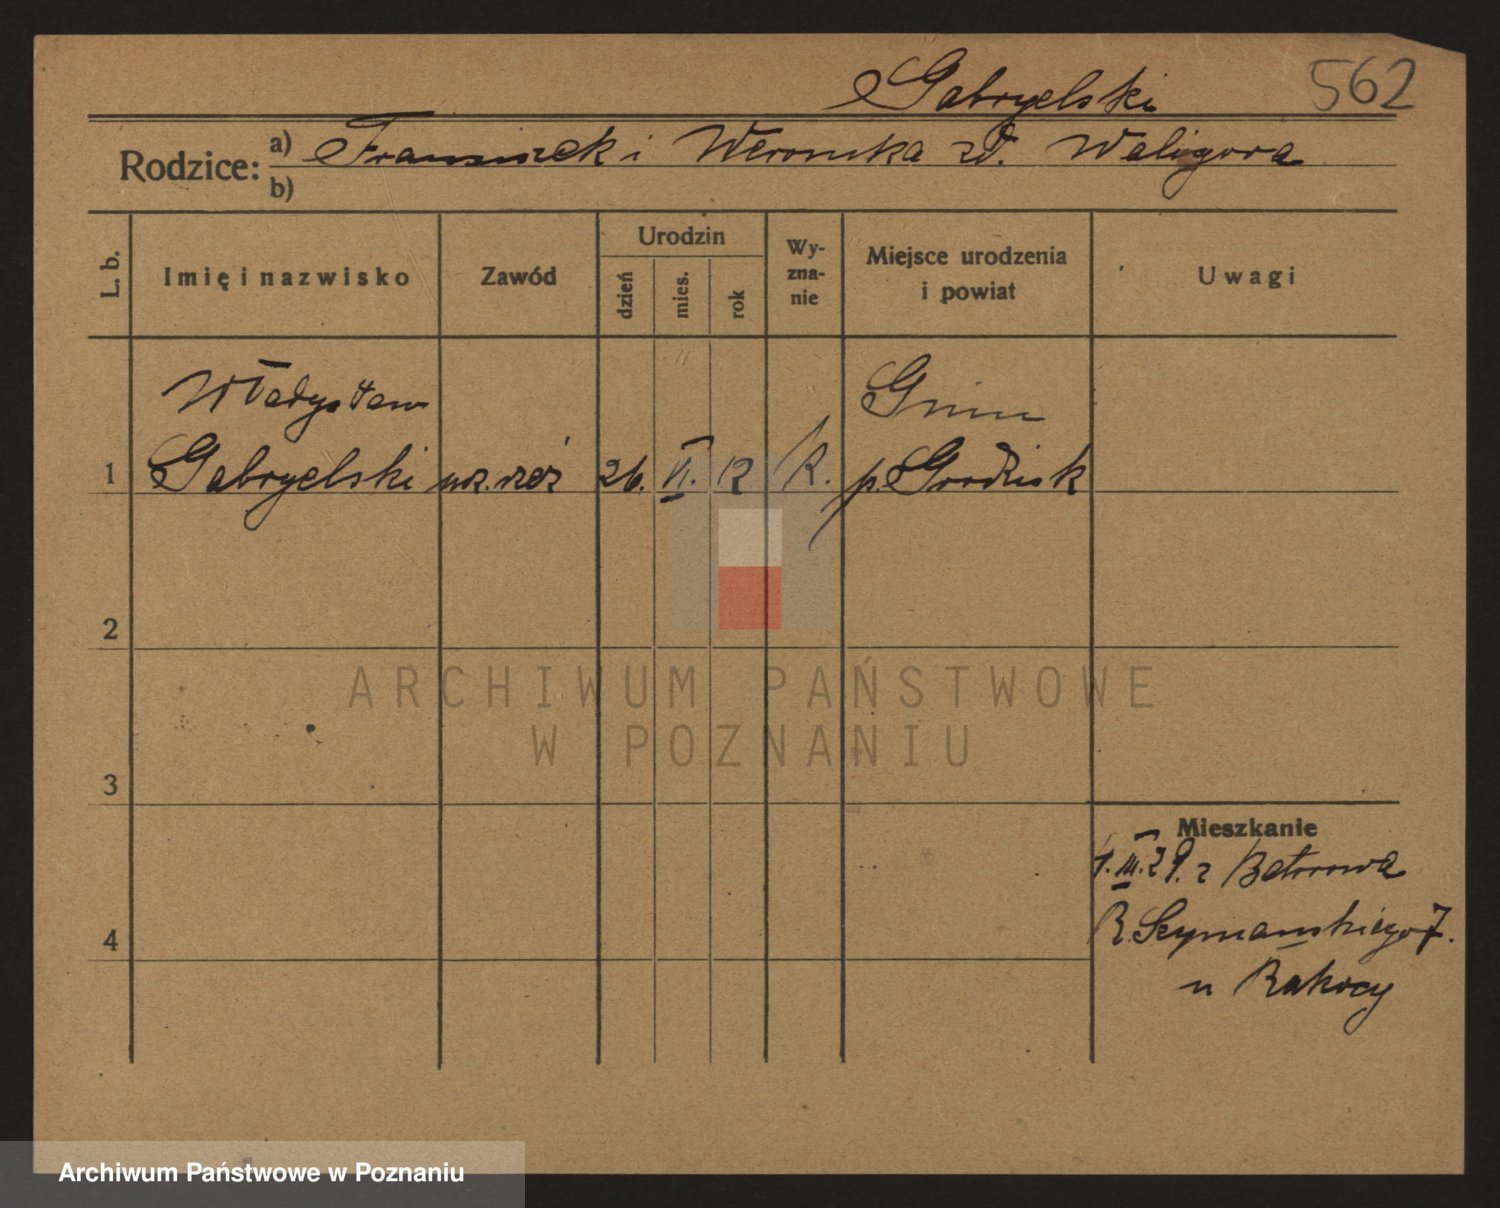 Gabryelski
562
Rodzice:
a) Franciszek i Weronika zd. Waligora
b)
L. b.
Imię i nazwisko
Zawód
Urodzin
dzień
mies.
rok
Wy-
zna-
nie
Miejsce urodzenia
i powiat
Uwagi
Władysław
Gnin
1 Gabryelski ucz. rzeź 26. VI. 12 K. p. Grodzisk
2
ARCHIWUM PAŃSTWOWE
W POZNANIU
3
Mieszkanie
1. III. 29. z
4 R. Szymańskiego 7.
u Rakocy
Archiwum Państwowe w Poznaniu